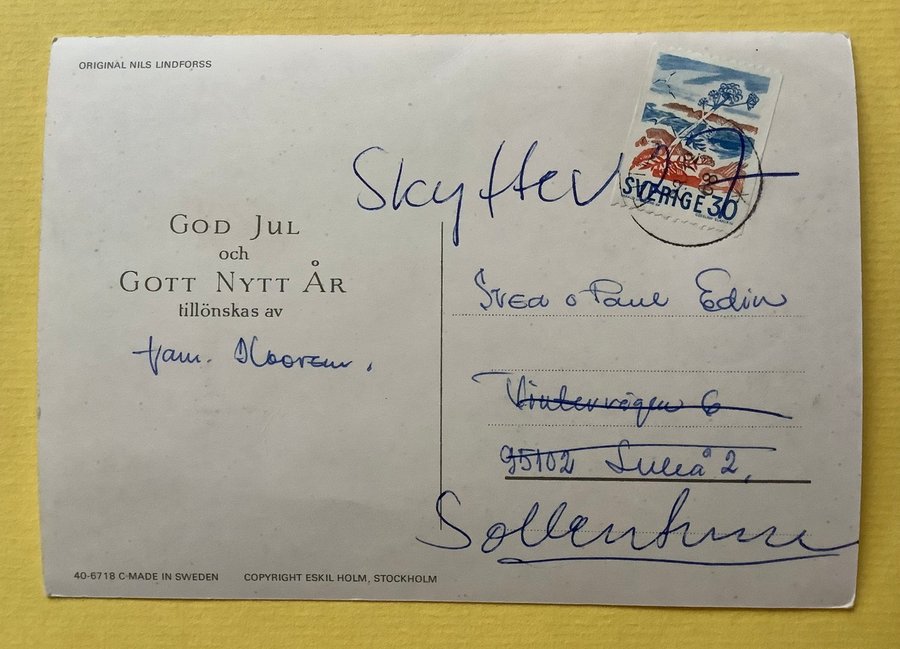 ORIGINAL NILS LINDFORSS
SVERIGE 30
GOD JUL
och
GOTT NYTT ÅR
tillönskas av
fam.
Svea o Paul Edin
Vintervägen 6
95102 Luleå 2.
Sollentuna
40-6718 C-MADE IN SWEDEN COPYRIGHT ESKIL HOLM, STOCKHOLM